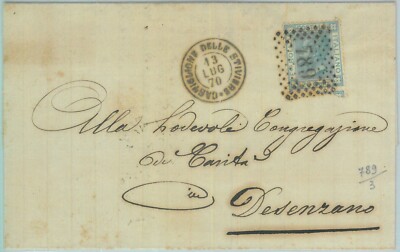 CASTIGLIONE DELLE STIVIERE
13
LUG
70
Alla Lodevole Congregazione
di Carità
in
Desenzano
789
3